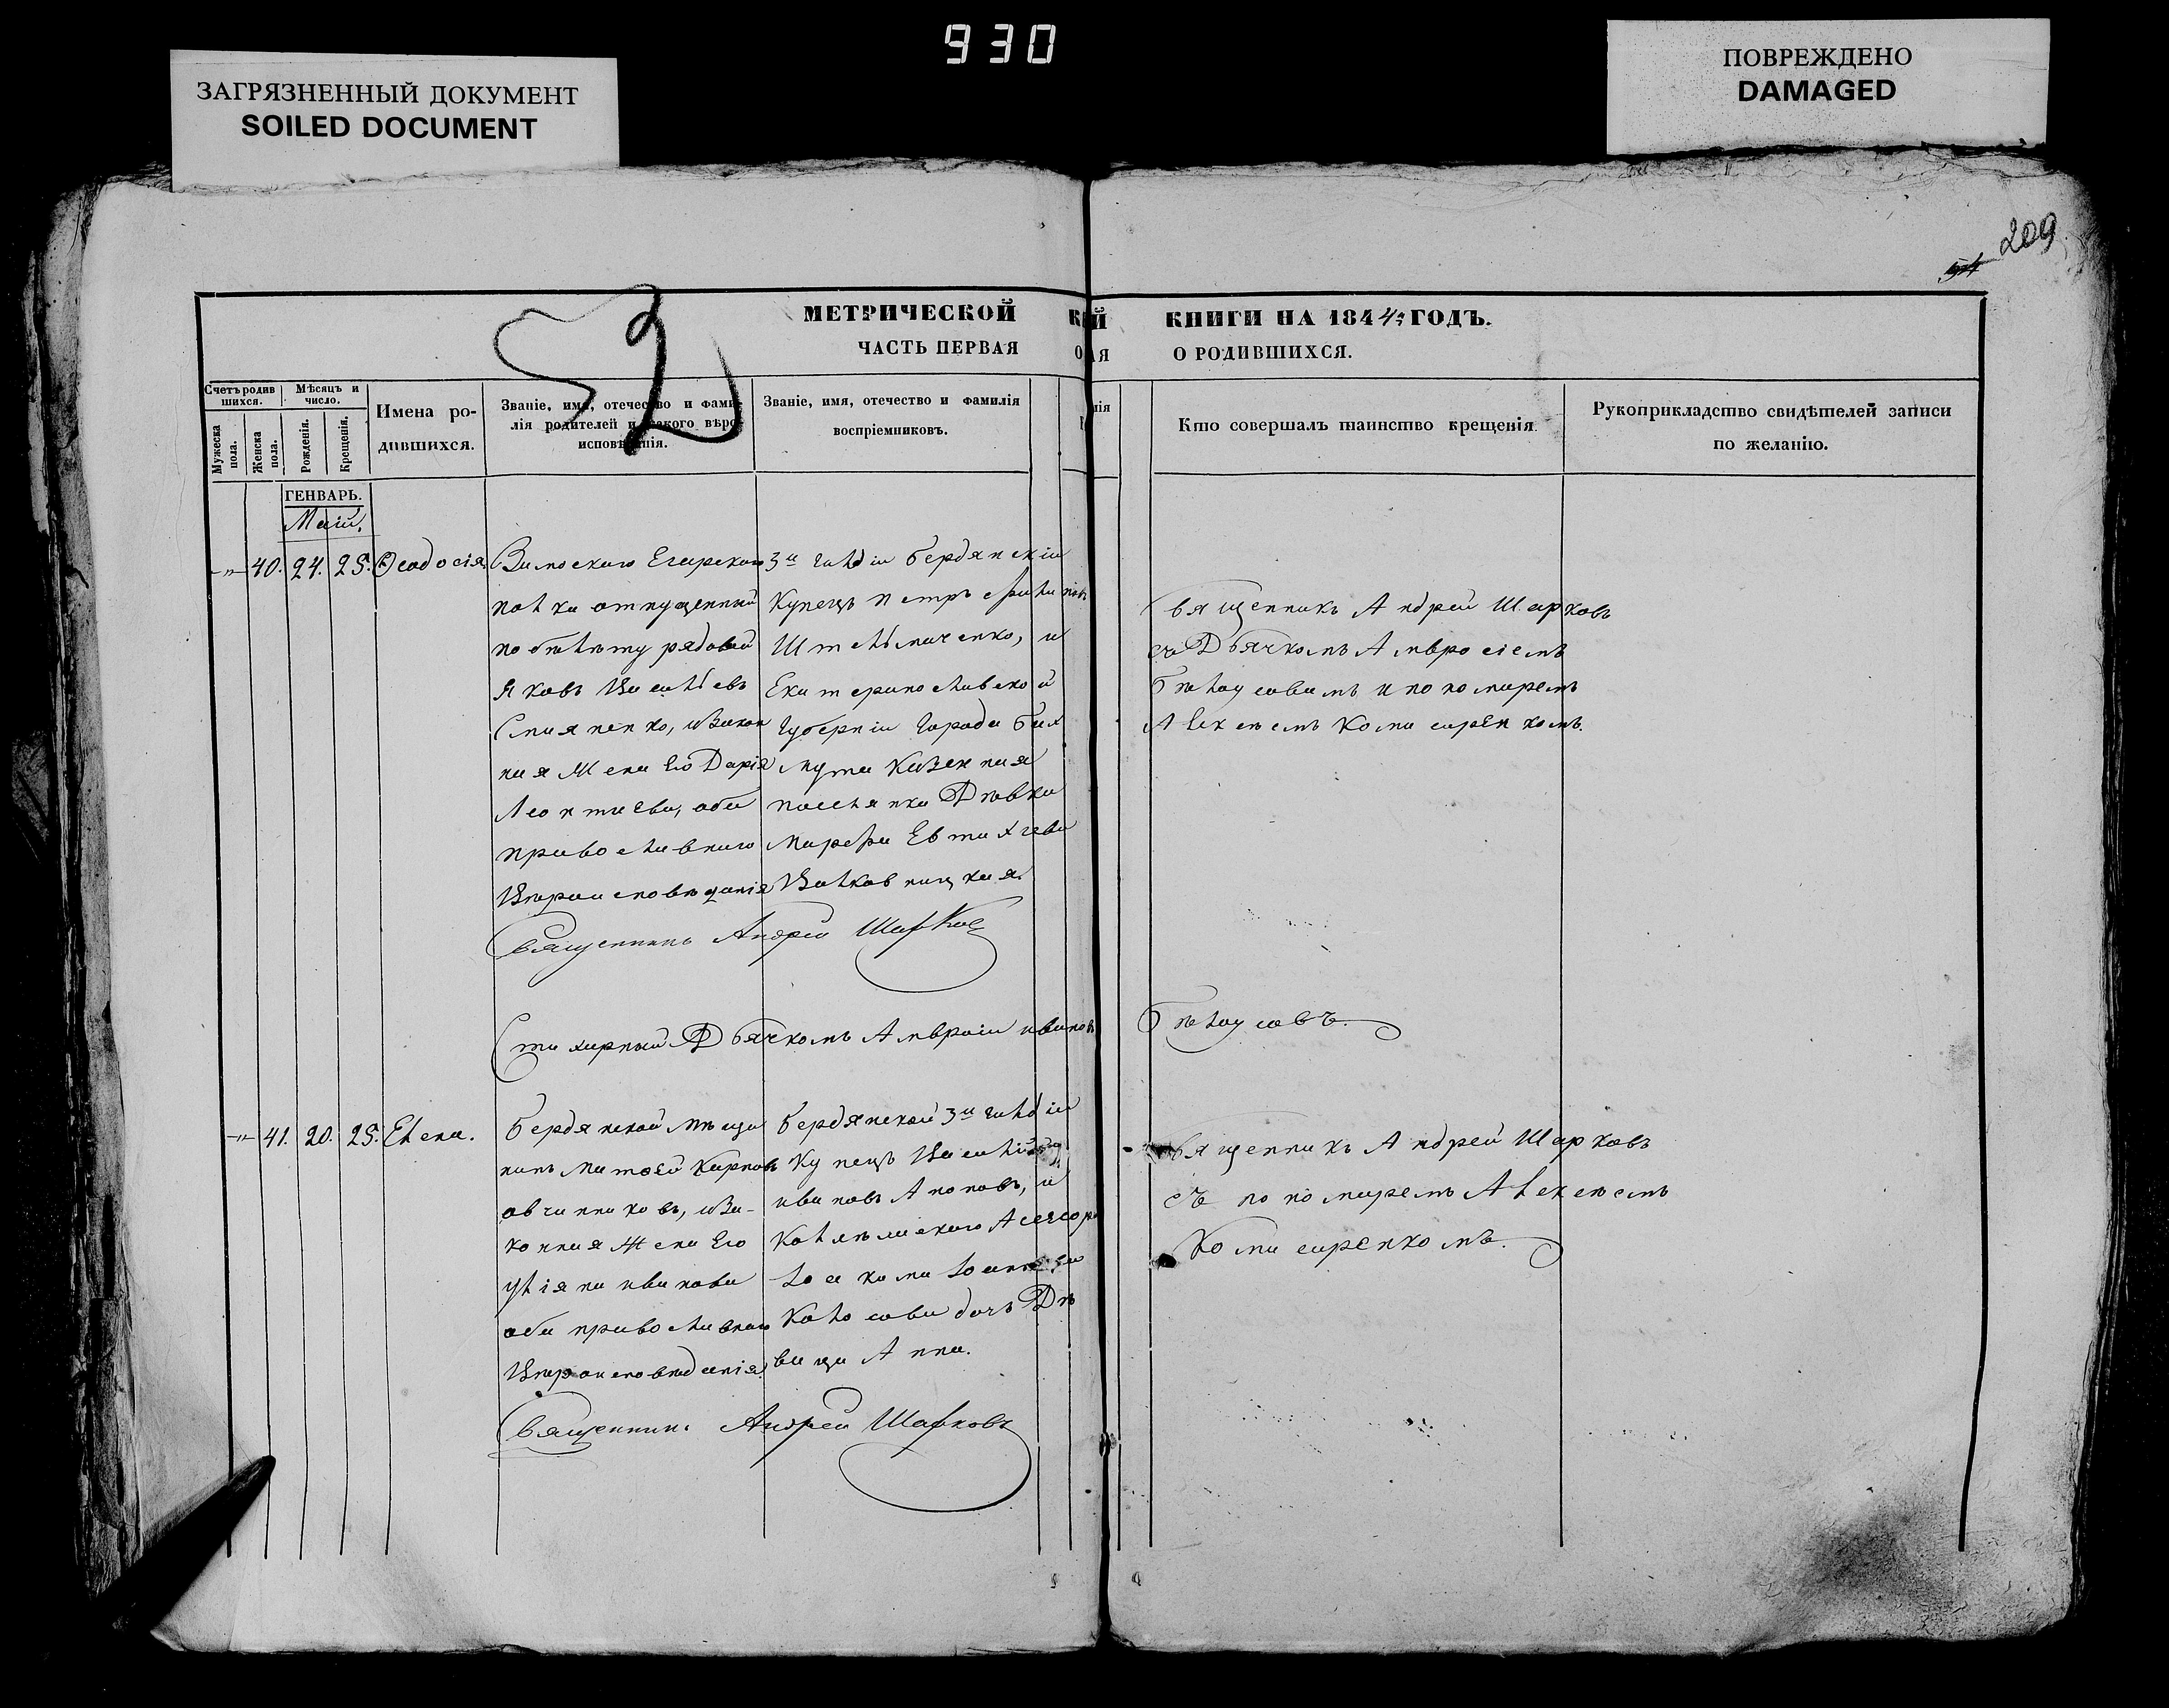 930
ЗАГРЯЗНЕННЫЙ ДОКУМЕНТ
SOILED DOCUMENT
ПОВРЕЖДЕНО
DAMAGED
209
МЕТРИЧЕСКОЙ
ЧАСТЬ ПЕРВАЯ
КНИГИ НА 1844: ГОДЪ.
О РОДИВШИХСЯ.
Счетъ родив
шихся.
Мужеска
пола.
Женска
пола.
Мѣсяцъ и
число.
Рожденія.
Крещенія.
Имена ро-
дившихся.
Званіе, имя, отечество и фами-
лія родителей и какого вѣро-
исповѣданія.
Званіе, имя, отечество и фамилія
воспріемниковъ.
Кто совершалъ таинство крещенія.
Рукоприкладство свидѣтелей записи
по желанію.
ГЕНВАРЬ.
Маій.
-"- 40. 24. 25. Ѳеодосія.
Егерскаго
полка отпущенный
по билѣту рядовой
Яковъ Васильевъ
законная
жена Его Дарія
Леонтиева, оба
православнаго
Вѣроисповѣданія
3й гильдіи бердянскій
Купецъ Петръ
Штельмаченко, и
Екатеринославской
Губерніи Города Бах
мута Казенная
поселянка Дѣвка
Марфа Евтихіева
Священникъ Андрей Шарковъ
съ Дьячкомъ Амвросіемъ
Бѣлоусовымъ и пономаремъ
Алексѣемъ
Священникъ Андрей Шарковъ
Стихирный Дьячкомъ Амвросій Ивановъ
Бѣлоусовъ.
-"- 41. 20. 25. Елена.
Бердянской мѣща
нинъ Матвей Карповъ
Овчинниковъ, и За-
конная Жена Его
Уліяна Иванова
оба православнаго
Вѣроисповѣданія.
Бердянской 3й гильдіи
Купецъ Василій
Ивановъ Апоповъ, и
Іоакима
дочъ Дѣ
вица Анна.
Священникъ Андрей Шарковъ
съ пономаремъ Алексѣемъ
Священникъ Андрей Шарковъ